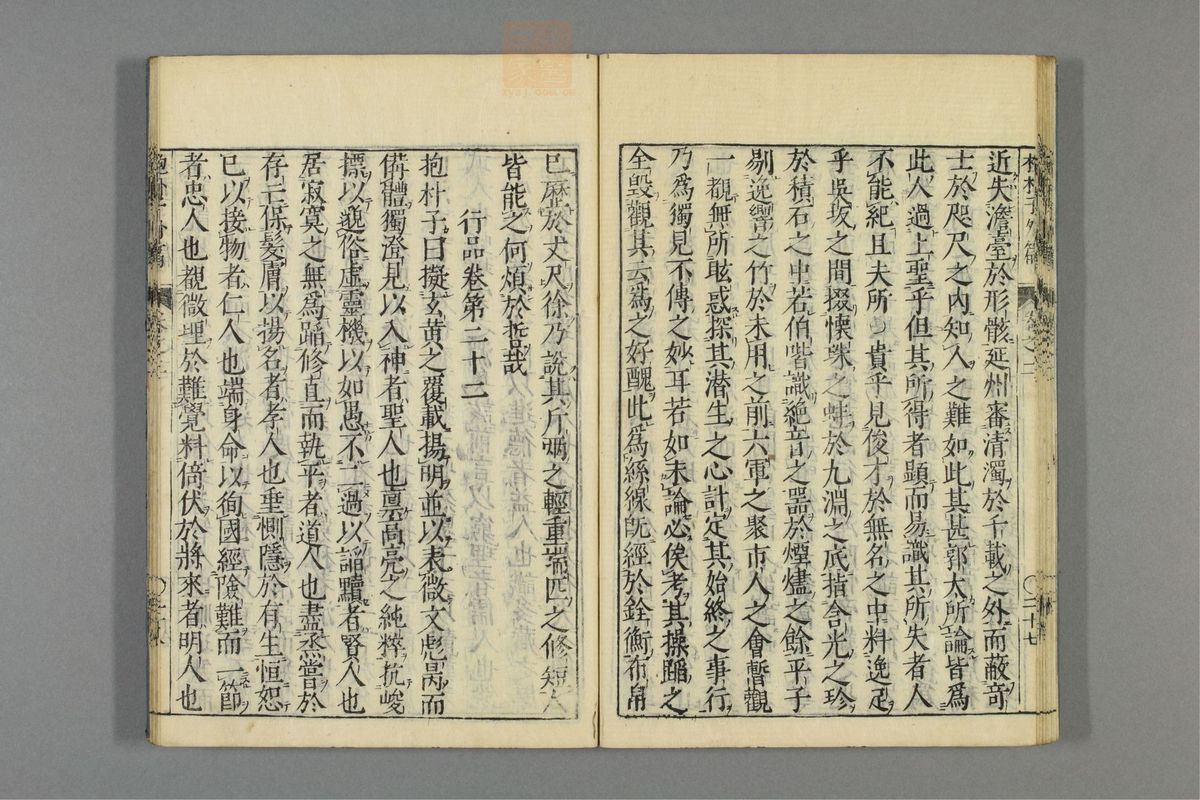 近失澹臺於形骸延州審清濁於千載之外而蔽奇
士於咫尺之內知人之難如此其甚郭太所論皆爲
此人過上聖乎但其所得者顯而易識其所失者人
不能紀且夫所貴貴乎見俊才於無名之中料逸足
乎吳坂之間掇懷珠之蚌於九淵之底指含光之珍
於積石之中若伯喈識絶音之器於煙燼之餘平子
剔逸響之竹於未用之前六軍之聚市人之會暫觀
一覩無所眩惑探其潜生之心計定其始終之事行
乃爲獨見不傳之妙耳若如未論必俟考其操蹈之
全毀觀其云爲之好醜此爲絲線旣經於銓衡布帛
已歷於丈尺徐乃說其斤兩之輕重端匹之修短人
皆能之何煩於哲哉
行品卷第二十二
抱朴子曰擬玄黃之覆載揚明並以表微文彪昺而
備體獨澄見以入神者聖人也禀高亮之純粹抗峻
標以邈俗虛靈機以如愚不二過以諂黷者賢人也
居寂寞之無爲蹈修直而執平者道人也盡烝嘗於
存亡保髮膚以揚名者孝人也垂惻隱於有生恒恕
已以接物者仁人也端身命以徇國經險難而一節
者忠人也覩微理於難覺料倚伏於將來者明人也
抱朴子外篇
卷之二
〇二十七